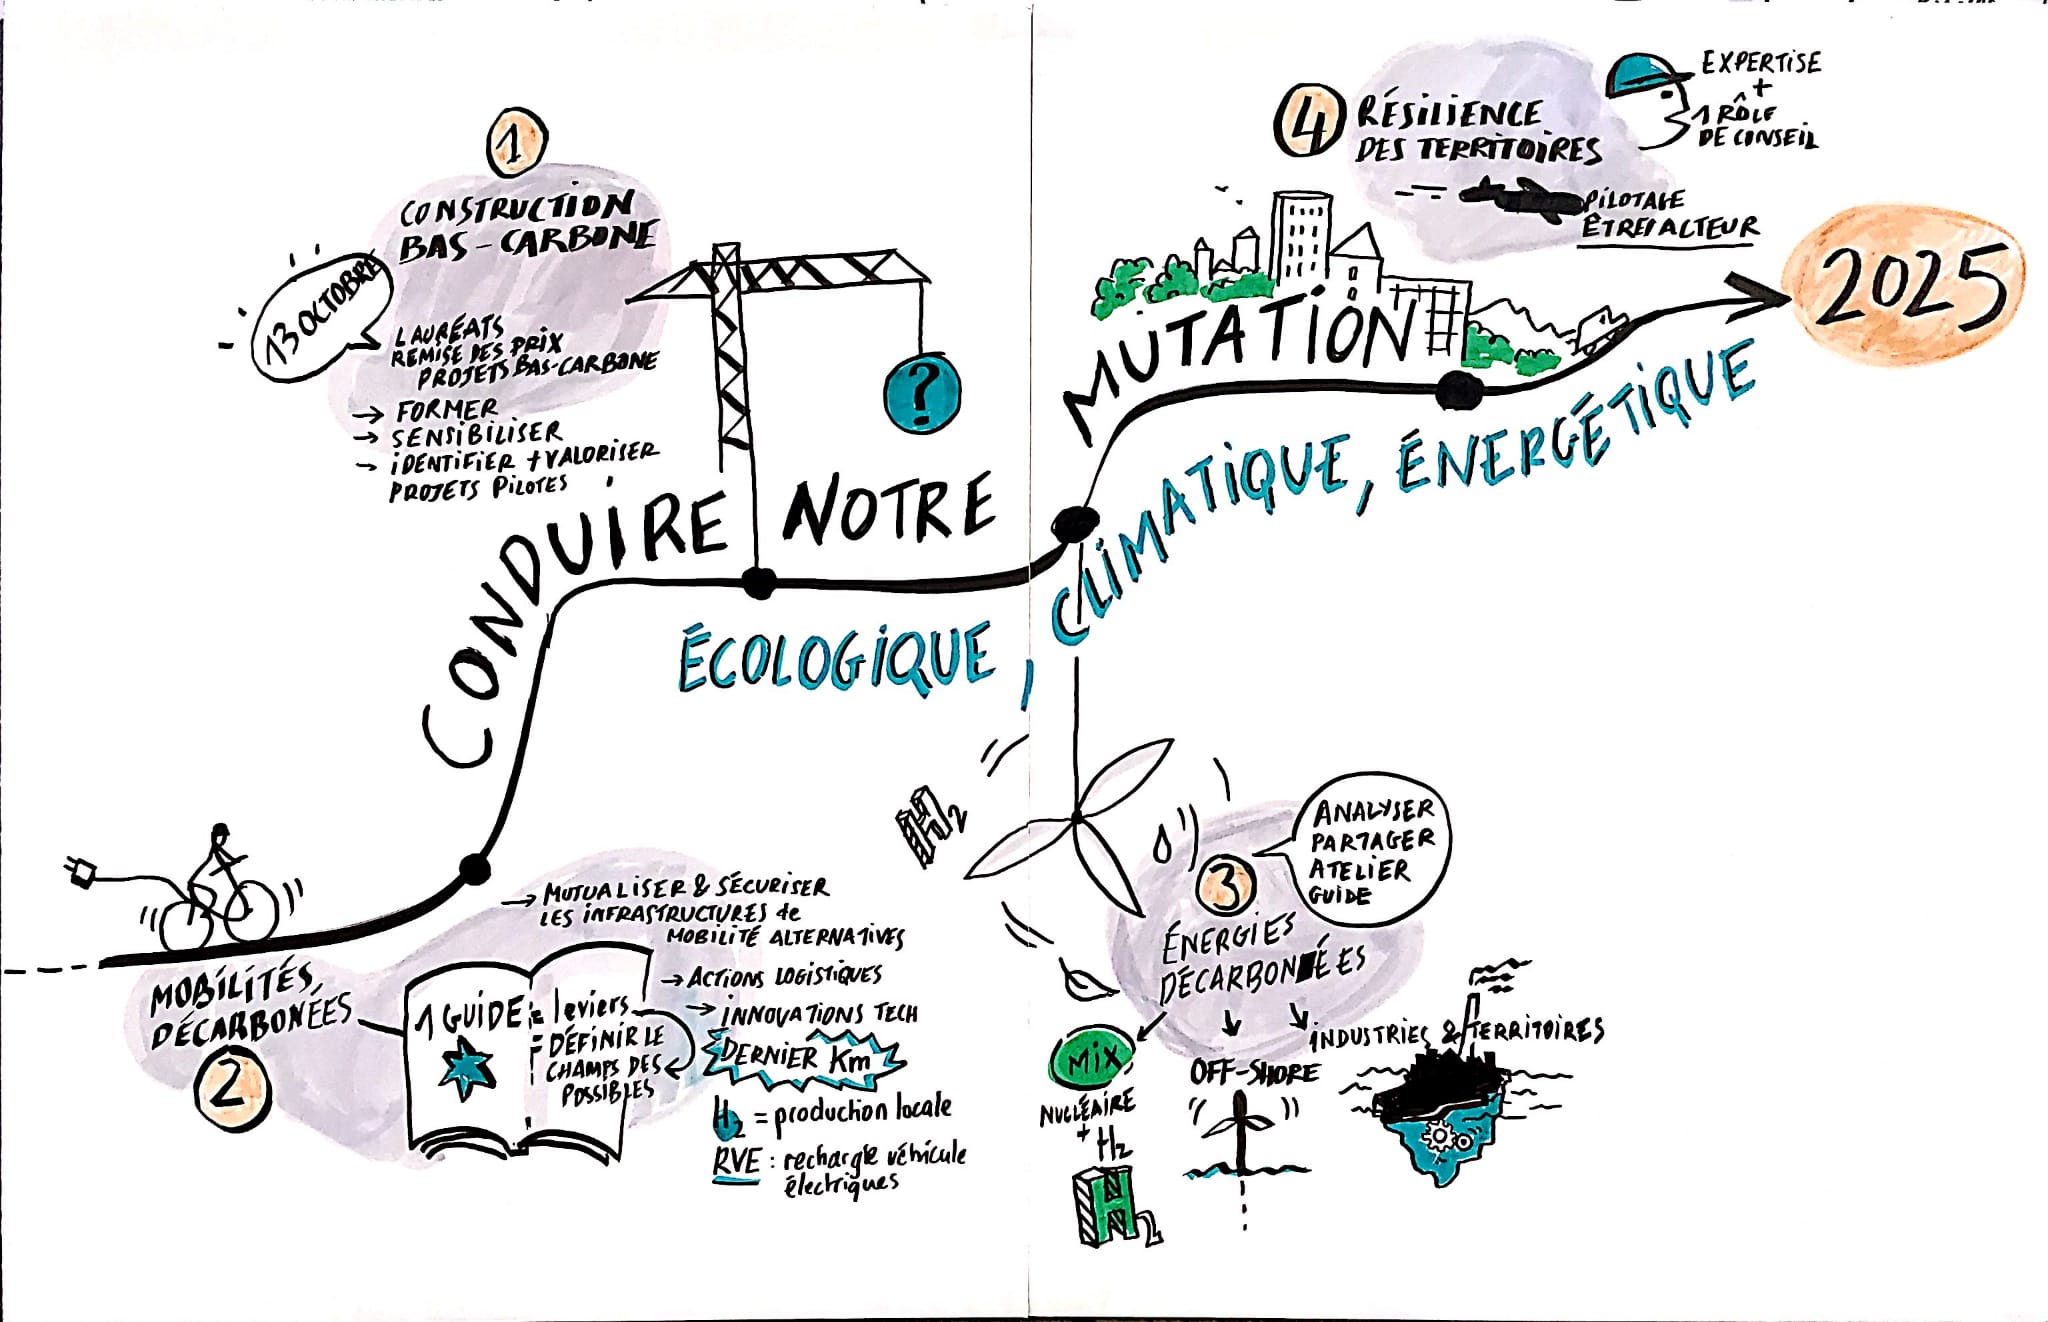 CONDUIRE NOTRE MUTATION
ÉCOLOGIQUE, CLIMATIQUE, ÉNERGÉTIQUE
2025
1
CONSTRUCTION
BAS-CARBONE
13 OCTOBRE
LAURÉATS
REMISE DES PRIX
PROJETS BAS-CARBONE
→ FORMER
→ SENSIBILISER
→ IDENTIFIER + VALORISER
PROJETS PILOTES
?
MOBILITÉS
DÉCARBONÉES
2
1 GUIDE = leviers
DÉFINIR LE
CHAMPS DES
POSSIBLES
→ MUTUALISER & SÉCURISER
LES INFRASTRUCTURES de
MOBILITÉ ALTERNATIVES
→ ACTIONS LOGISTIQUES
→ INNOVATIONS TECH
DERNIER Km
H2 = production locale
RVE : recharge véhicule
électriques
H2
3
ÉNERGIES
DÉCARBONÉES
ANALYSER
PARTAGER
ATELIER
GUIDE
MIX
NUCLÉAIRE
+ H2
H2
OFF-SHORE
INDUSTRIES & TERRITOIRES
4
RÉSILIENCE
DES TERRITOIRES
EXPERTISE
+
1 RÔLE
DE CONSEIL
PILOTAGE
ÊTRE ACTEUR